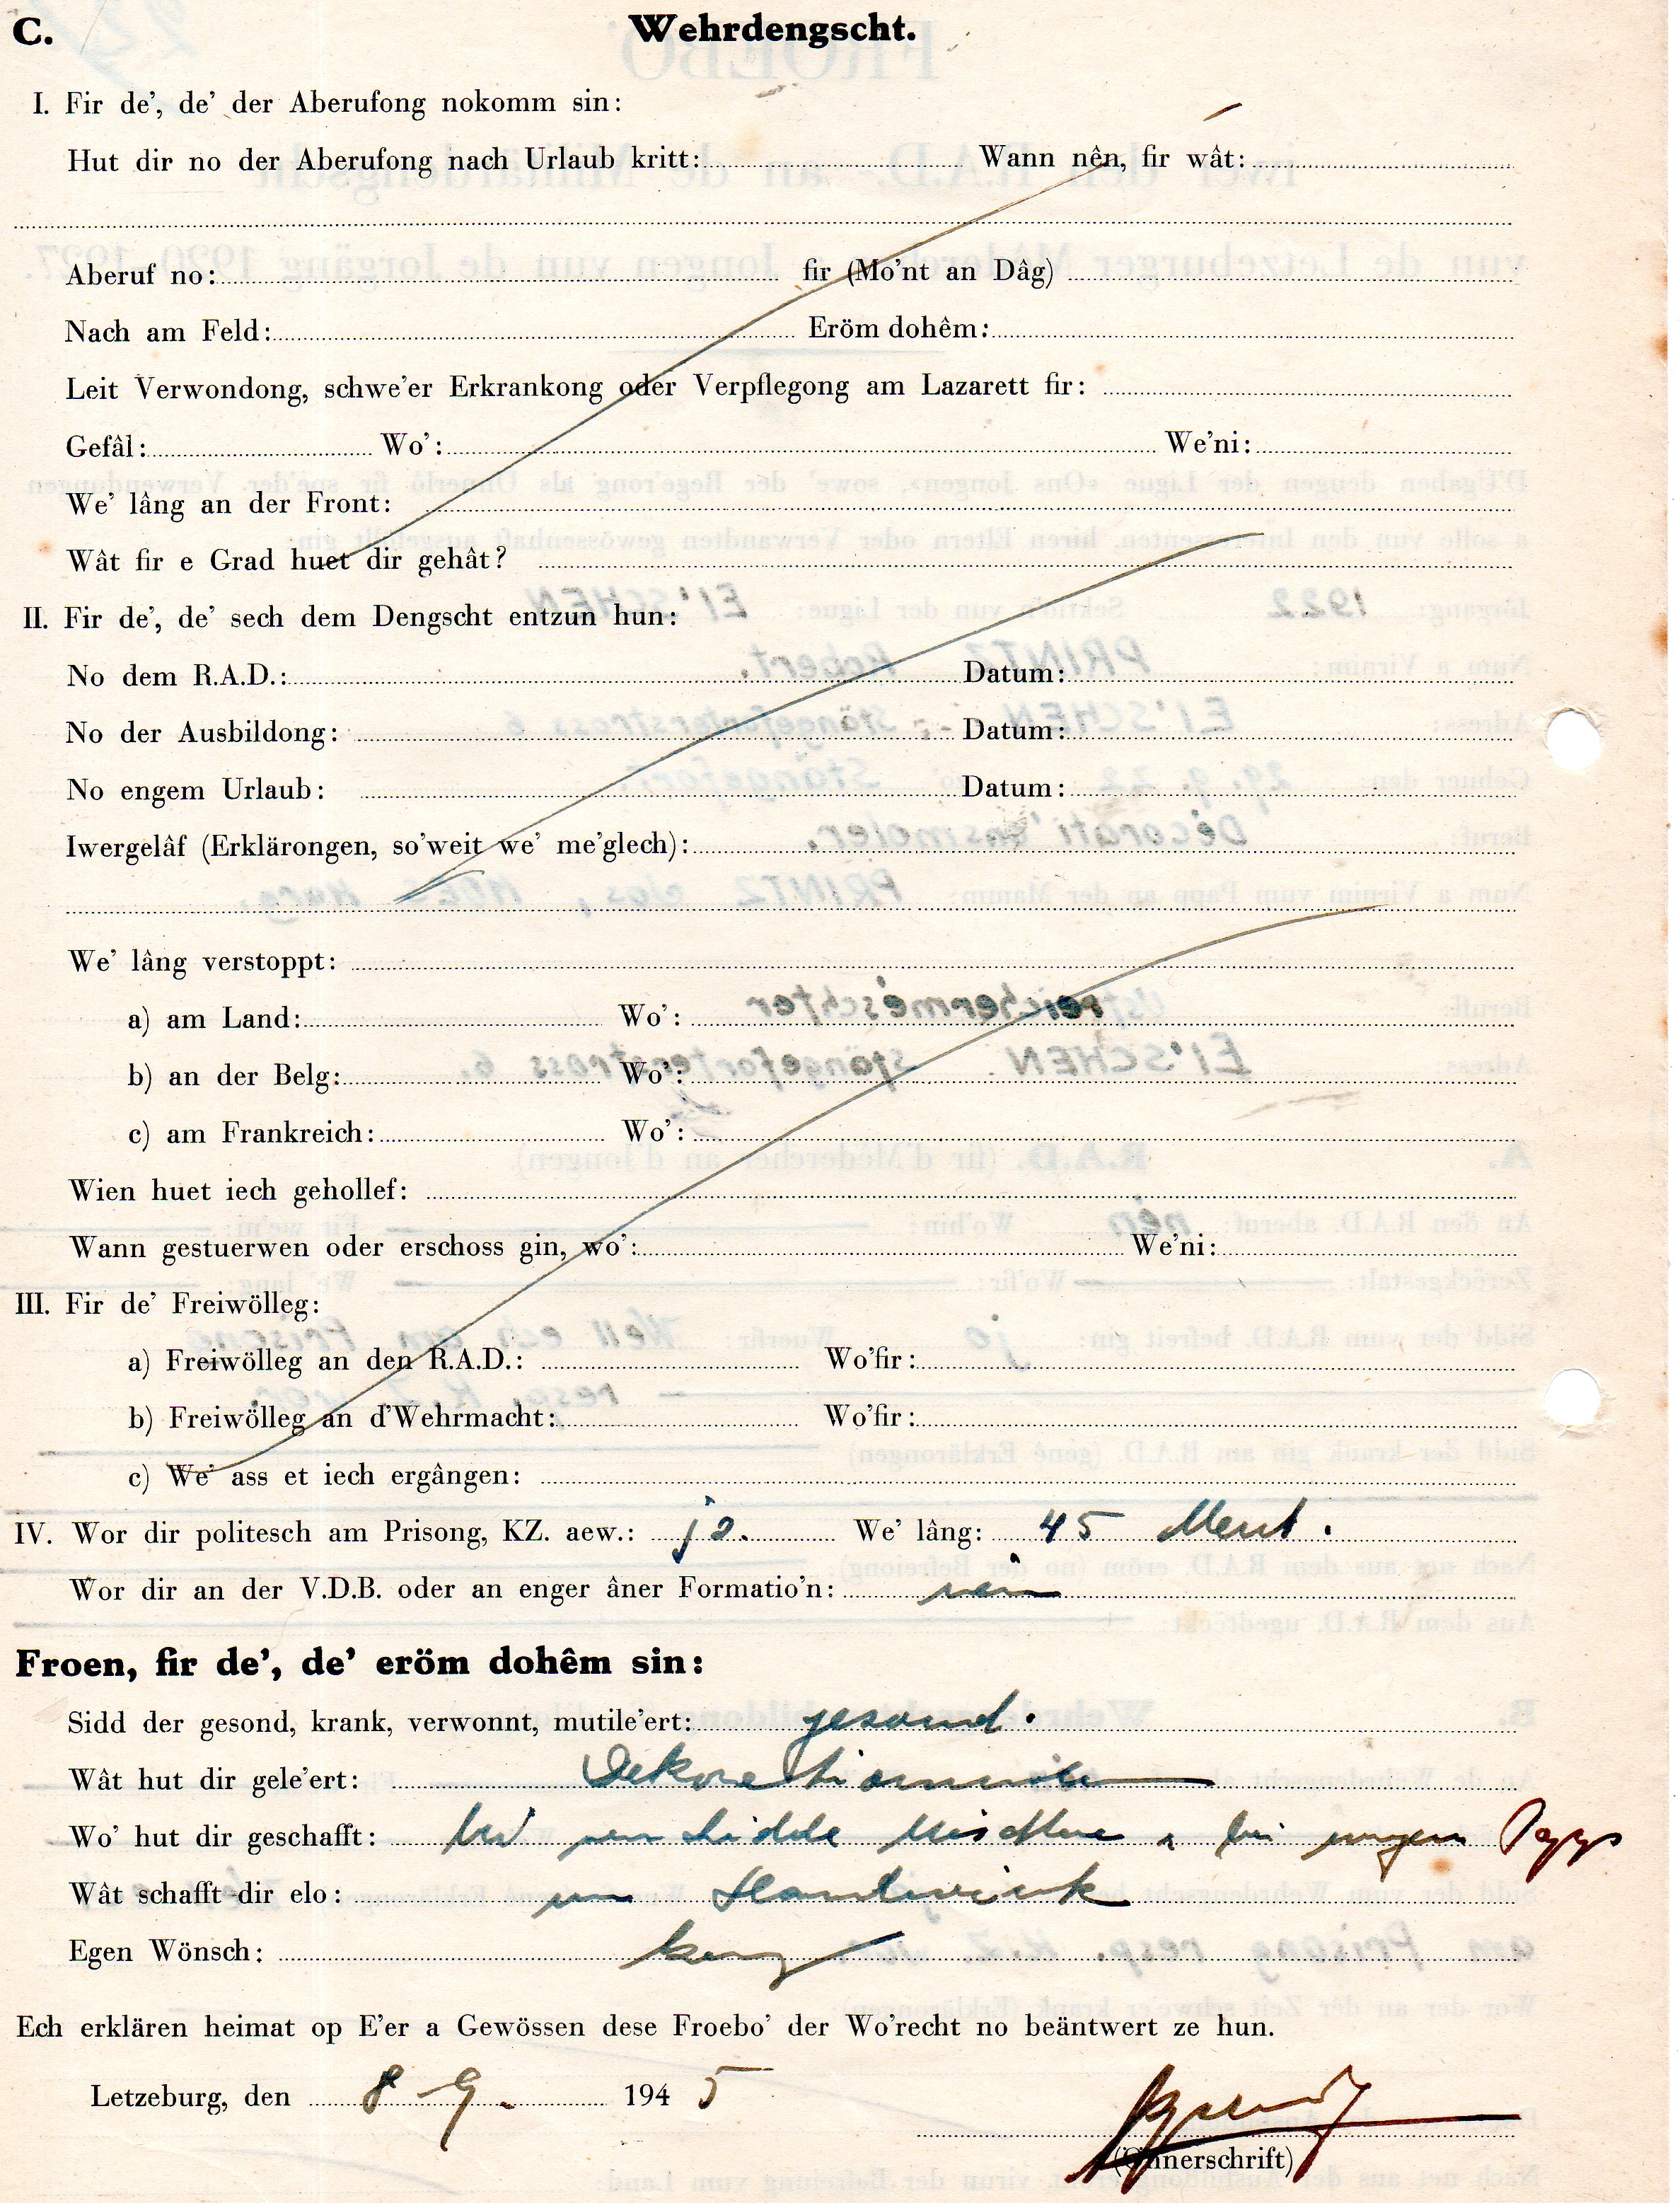 C. Wehrdengscht.
I. Fir de', de' der Aberufong nokomm sin:
Hut dir no der Aberufong nach Urlaub kritt: Wann nên, fir wât:
Aberuf no: fir (Mo'nt an Dâg)
Nach am Feld: Eröm dohêm:
Leit Verwondong, schwe'er Erkrankong oder Verpflegong am Lazarett fir:
Gefâl: Wo': We'ni:
We' lâng an der Front:
Wât fir e Grad huet dir gehât?
II. Fir de', de' sech dem Dengscht entzun hun:
No dem R.A.D.: Datum:
No der Ausbildong: Datum:
No engem Urlaub: Datum:
Iwergelâf (Erklärongen, so'weit we' me'glech):
We' lâng verstoppt:
a) am Land: Wo':
b) an der Belg: Wo':
c) am Frankreich: Wo':
Wien huet iech gehollef:
Wann gestuerwen oder erschoss gin, wo': We'ni:
III. Fir de' Freiwölleg:
a) Freiwölleg an den R.A.D.: Wo'fir:
b) Freiwölleg an d'Wehrmacht: Wo'fir:
c) We' ass et iech ergângen:
IV. Wor dir politesch am Prisong, KZ. aew.: jo. We' lâng: 45 Ment.
Wor dir an der V.D.B. oder an enger âner Formatio'n: nein
Froen, fir de', de' eröm dohêm sin:
Sidd der gesond, krank, verwonnt, mutile'ert: gesond.
Wât hut dir gele'ert:
Wo' hut dir geschafft: Papp
Wât schafft dir elo: um Handwierk
Egen Wönsch: keng
Ech erklären heimat op E'er a Gewössen dese Froebo' der Wo'recht no beäntwert ze hun.
Letzeburg, den 8 - 9. 1945
(Önnerschrift)